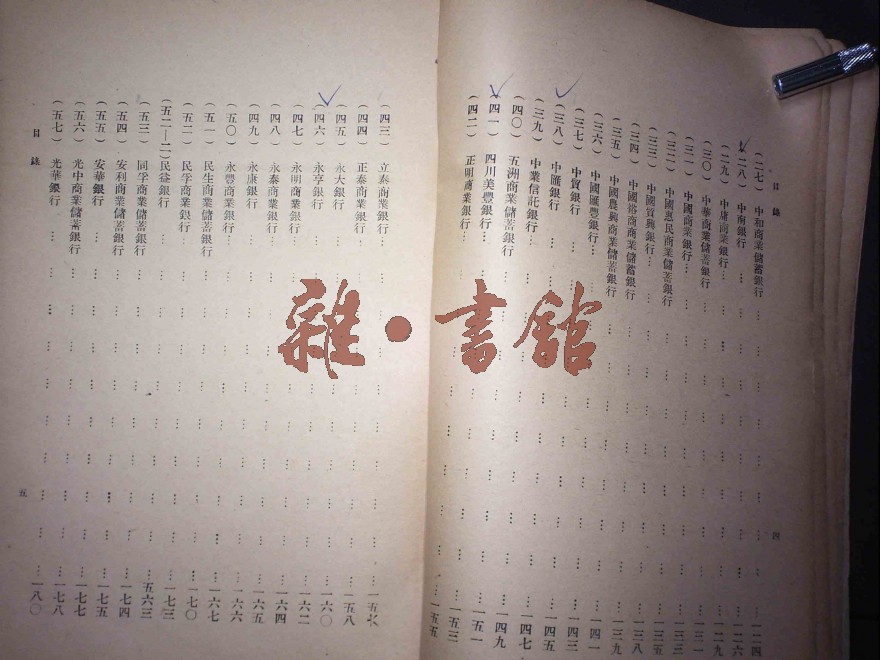 目錄
四
（二七）中和商業儲蓄銀行…一二四
（二八）中南銀行…一二六
（二九）中庸商業銀行…一二九
（三〇）中華商業儲蓄銀行…一三一
（三一）中國商業銀行…一三三
（三二）中國惠民商業儲蓄銀行…一三五
（三三）中國質興銀行…一三八
（三四）中國裕商商業儲蓄銀行…一三九
（三五）中國農興商業儲蓄銀行…一四一
（三六）中國匯豐銀行…一四三
（三七）中貿銀行…一四五
（三八）中匯銀行…一四七
（三九）中業信託銀行…一四九
（四〇）五洲商業儲蓄銀行…一五一
（四一）四川美豐銀行…一五三
（四二）正明商業銀行…一五五
（四三）立泰商業銀行…一五六
（四四）正泰商業銀行…一五八
（四五）永大銀行…一六〇
（四六）永亨銀行…一六二
（四七）永明商業銀行…一六四
（四八）永泰商業銀行…一六五
（四九）永康銀行…一六六
（五〇）永豐商業銀行…一六七
（五一）民生商業儲蓄銀行…一七〇
（五二）民孚商業銀行…一七三
（五二—二）民益銀行…五六三
（五三）同孚商業儲蓄銀行…一七四
（五四）安利商業儲蓄銀行…一七五
（五五）安華銀行…一七七
（五六）光中商業儲蓄銀行…一七八
（五七）光華銀行…一八〇
目錄
五
雜·書館